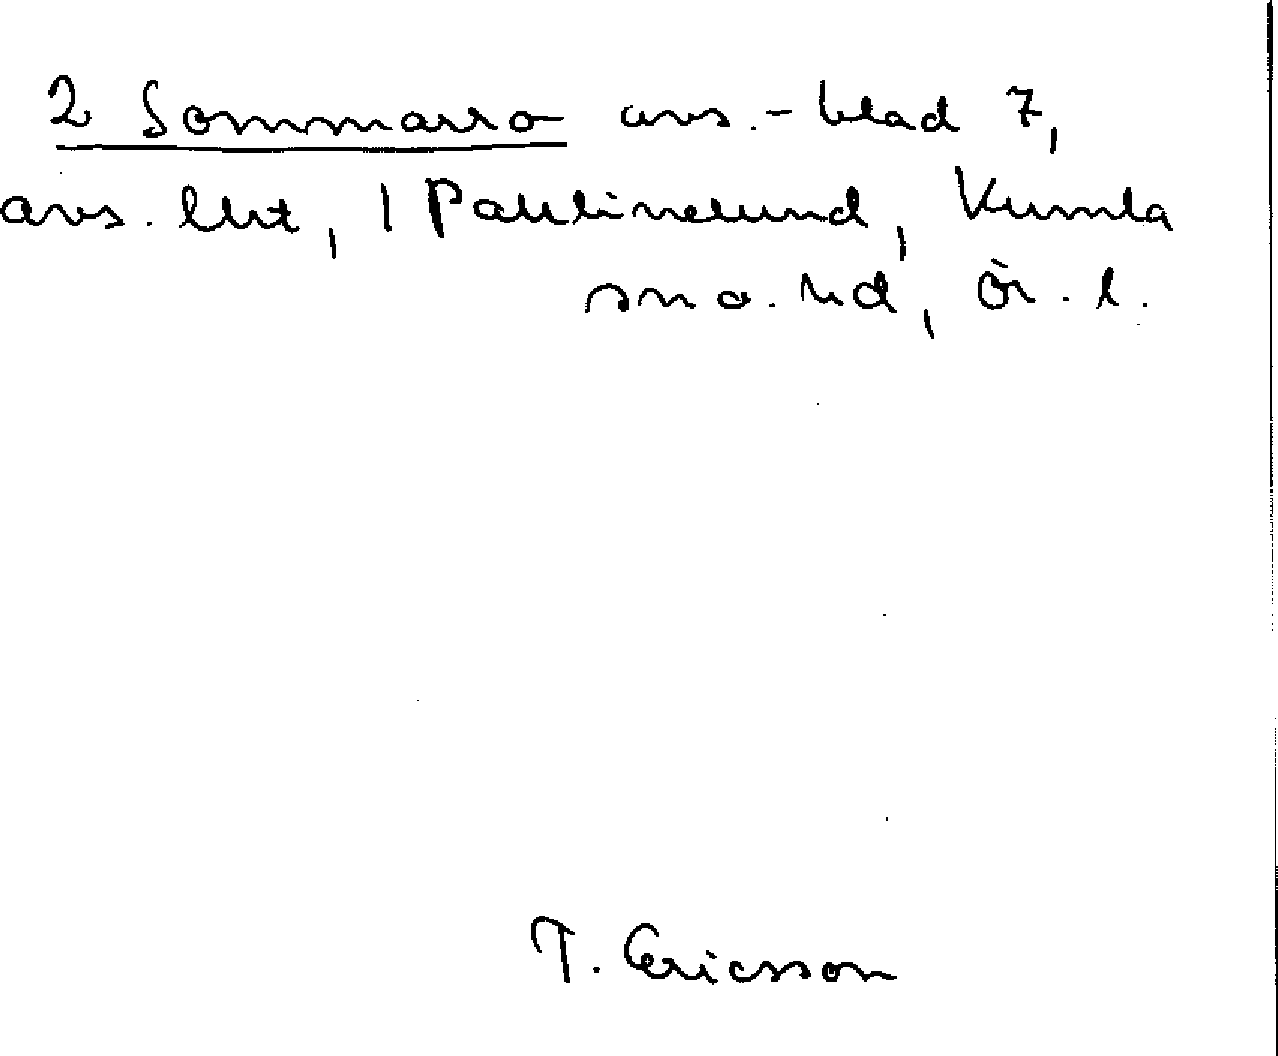 2 Sommarro avs.-blad 7,
avs. lht, 1 Paulinelund, Kumla
sn o. hd, Ör. l.
T. Ericsson